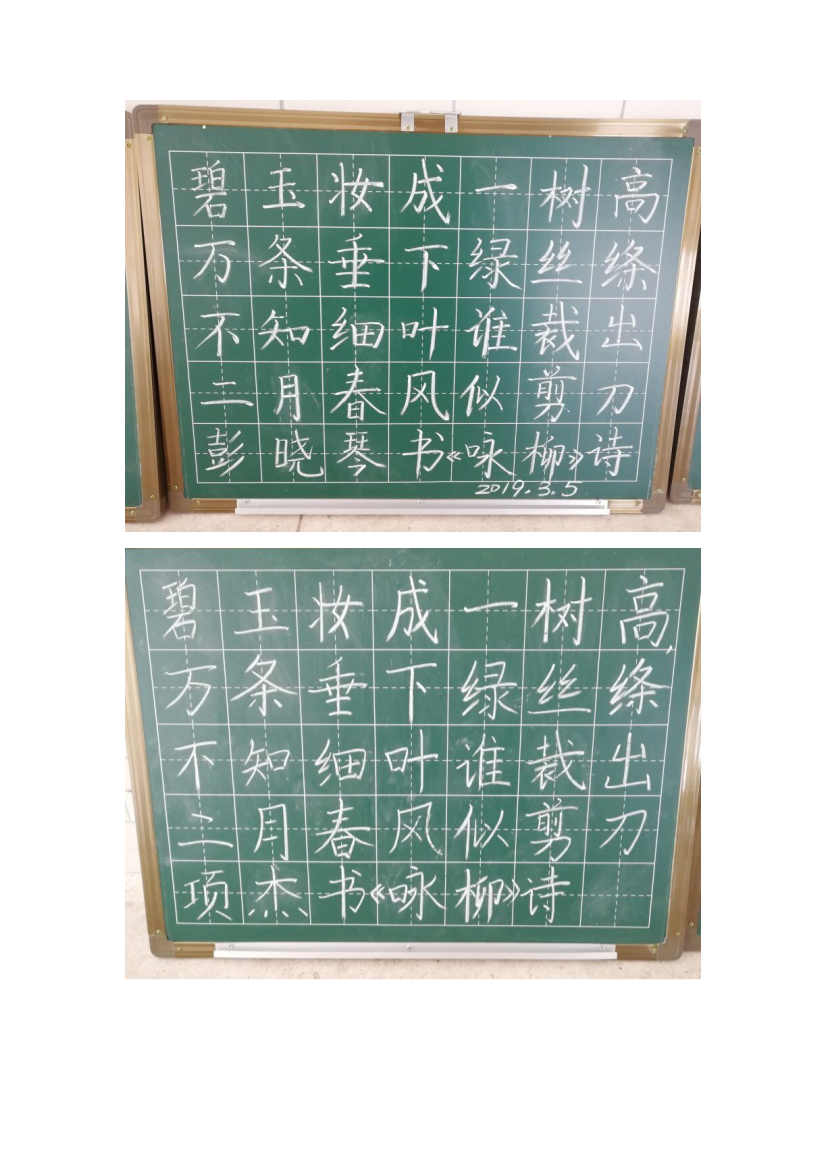 碧玉妆成一树高
万条垂下绿丝绦
不知细叶谁裁出
二月春风似剪刀
彭晓琴书《咏柳》诗
2019.3.5
碧玉妆成一树高,
万条垂下绿丝绦
不知细叶谁裁出
二月春风似剪刀
项杰书《咏柳》诗